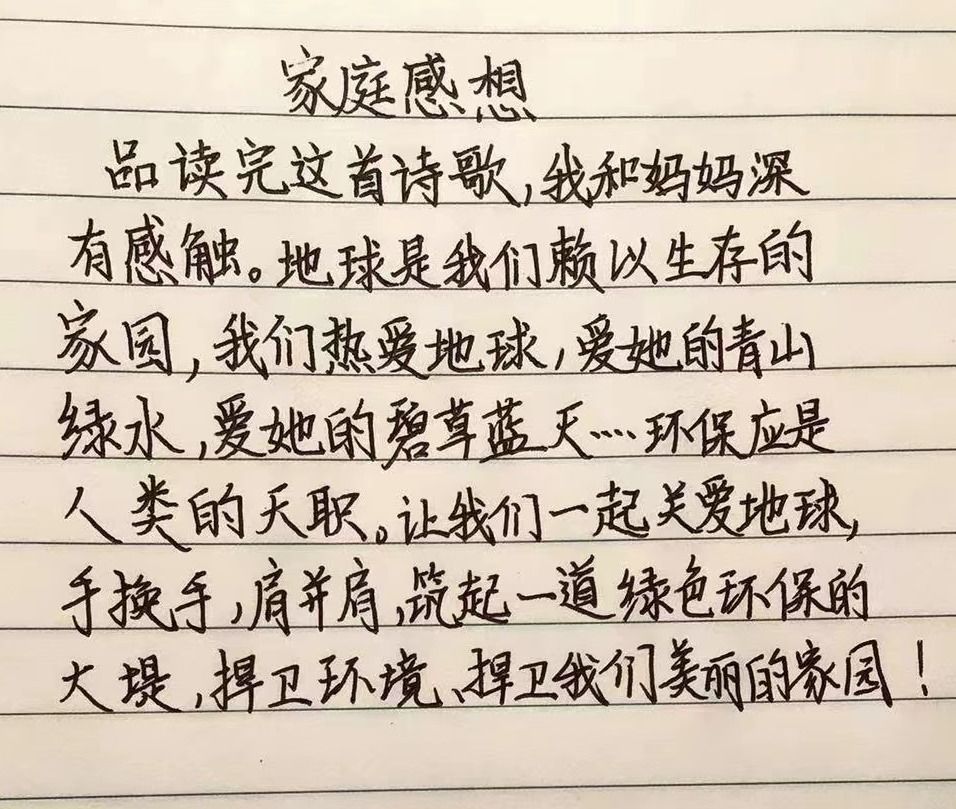 家庭感想
品读完这首诗歌,我和妈妈深
有感触。地球是我们赖以生存的
家园,我们热爱地球,爱她的青山
绿水,爱她的碧草蓝天……环保应是
人类的天职。让我们一起关爱地球,
手换手,肩并肩,筑起一道绿色环保的
大堤,捍卫环境、捍卫我们美丽的家园!